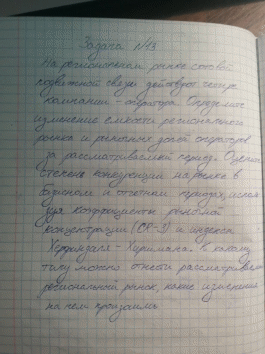 Задача №13
На региональном рынке сотовой
подвижной связи действуют четыре
компании - оператора. Определите
изменение емкости регионального
рынка и рыночных долей операторов
за рассматриваемый период. Оцените
степень конкуренции на рынке в
базисном и отчетном периодах, исполь
зуя коэффициенты рыночной
концентрации (CR-3) и индекса
Херфиндаля - Хиршмана. К какому
типу можно отнести рассматриваемый
региональный рынок, какие изменения
на нем произошли